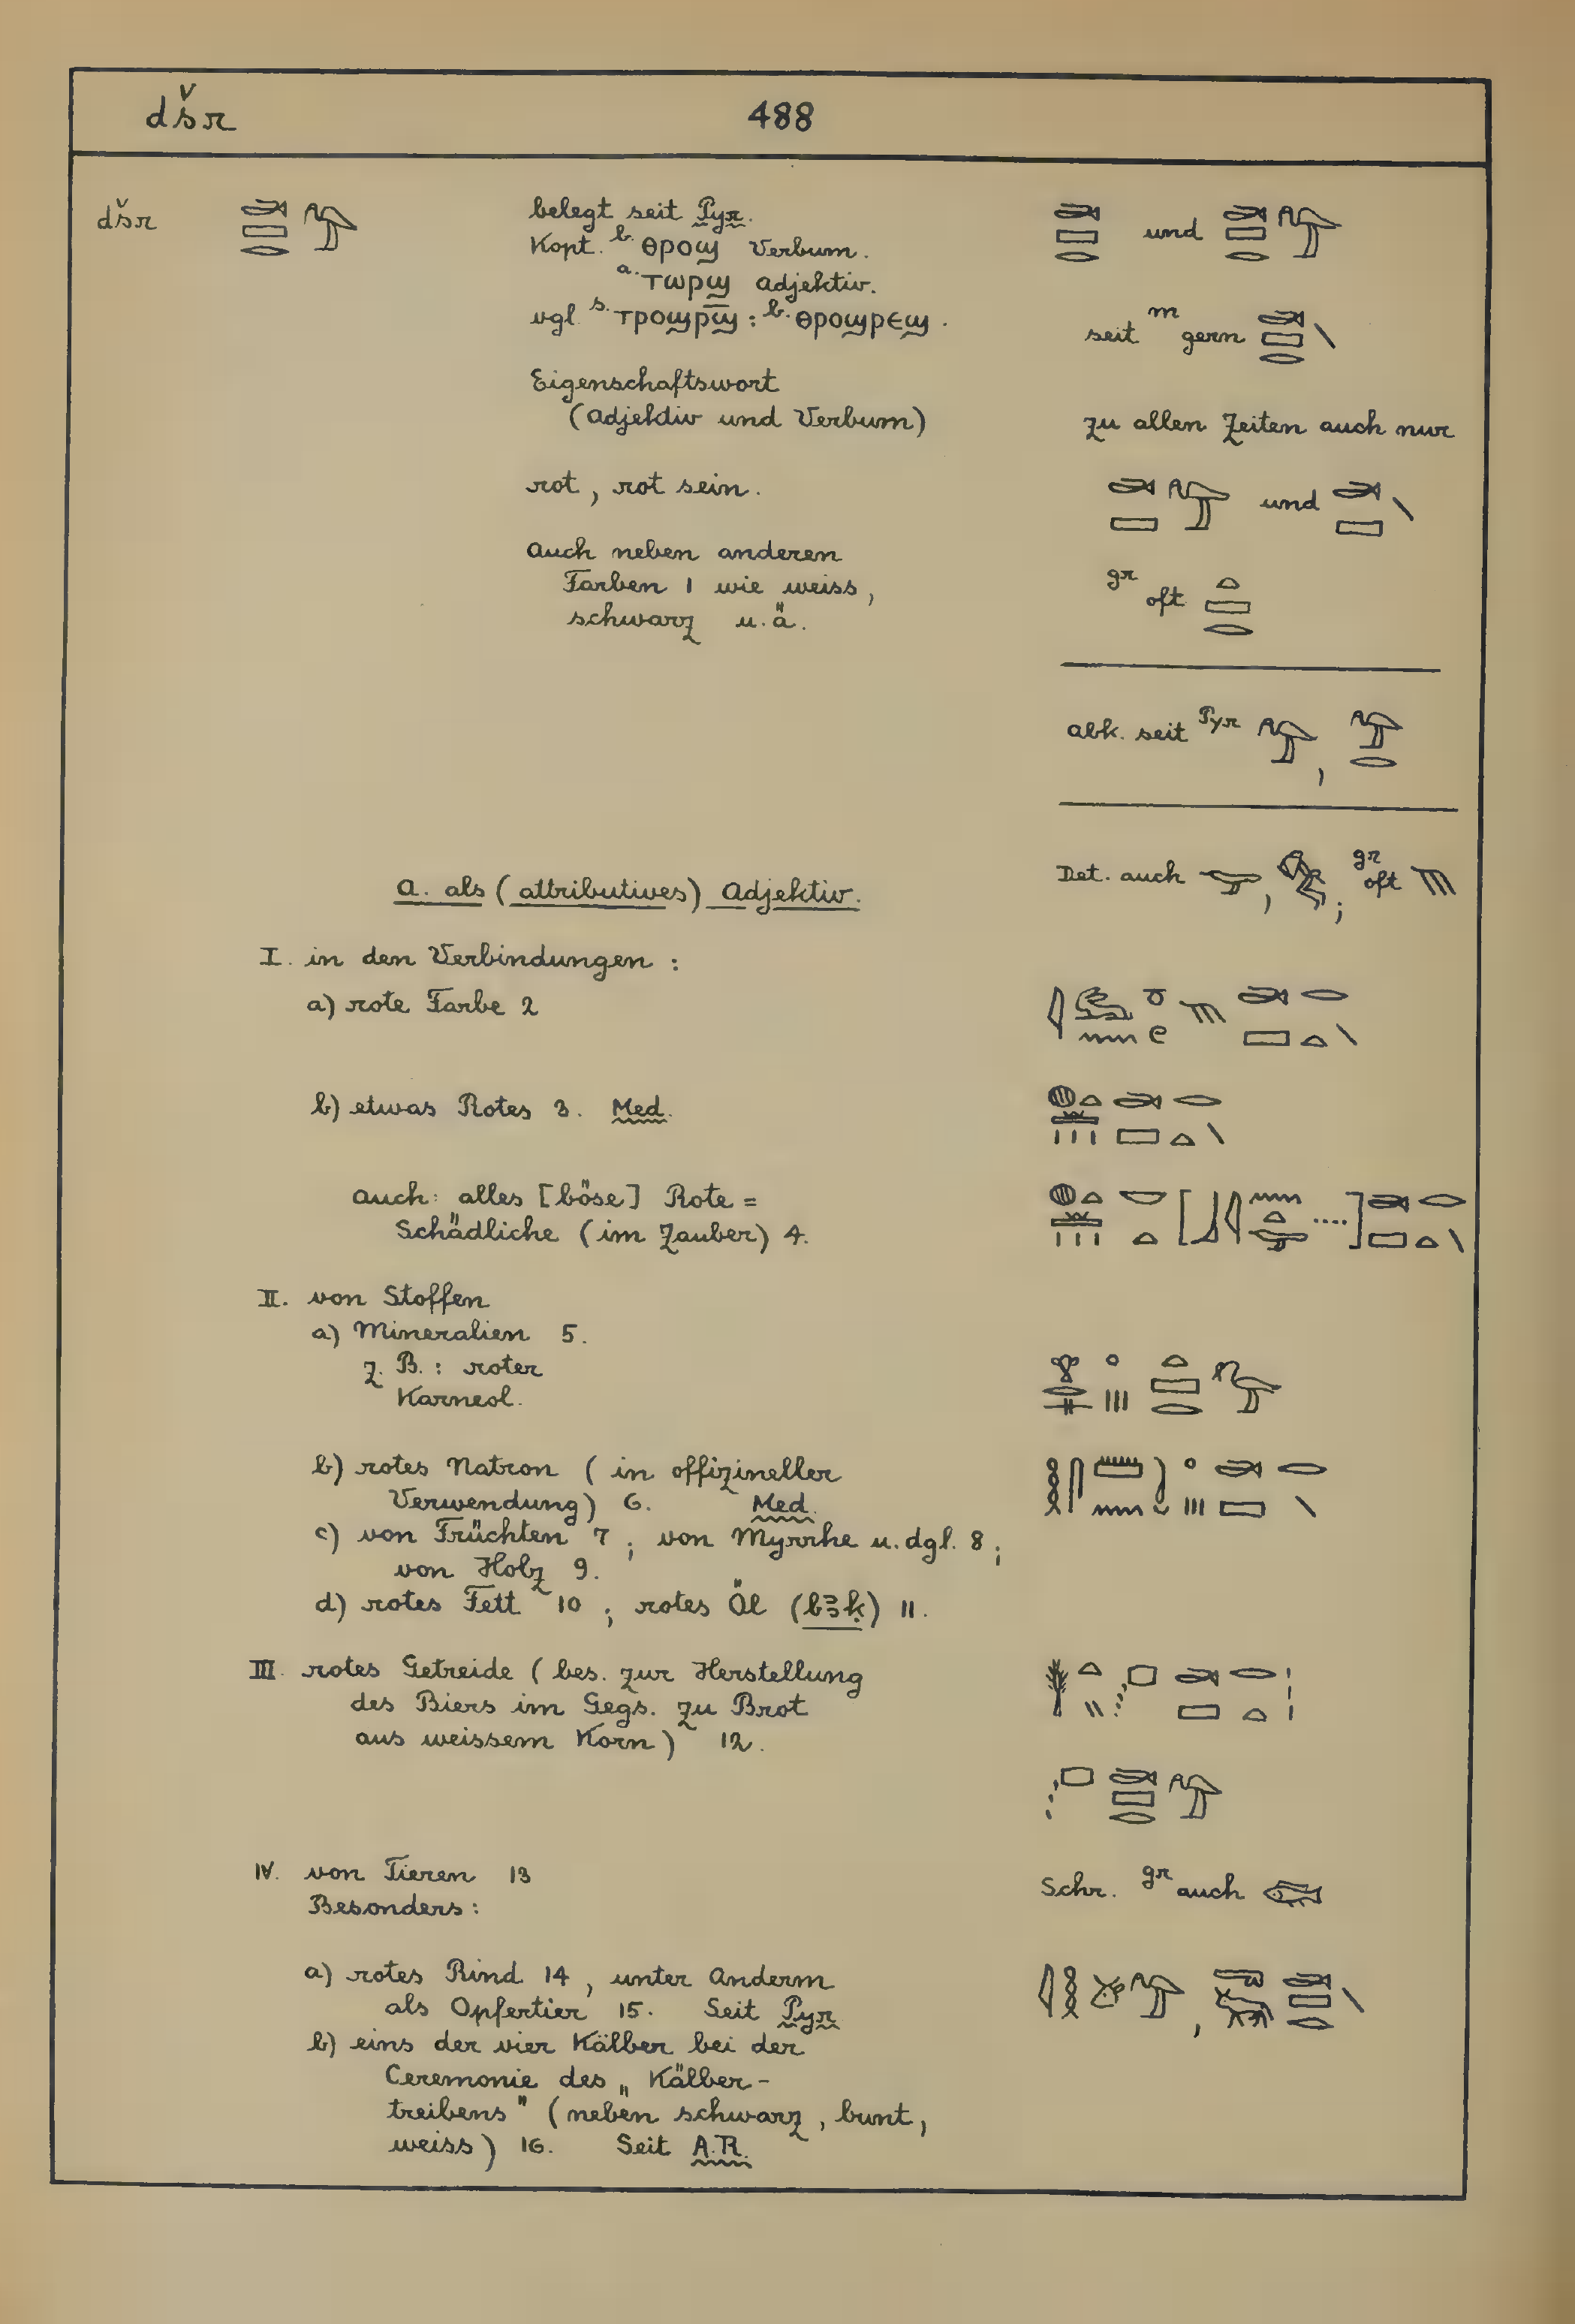 dšr 488
dšr 𓂧𓈙𓂋𓅟 belegt seit Pyr. 𓂧𓈙𓂋 und 𓂧𓈙𓂋𓅟
Kopt. b. ⲑⲣⲟϣ Verbum.
a. ⲧⲱⲣϣ Adjektiv.
vgl. s. ⲧⲣⲟϣⲣ̅ϣ̅ : b. ⲑⲣⲟϣⲣⲉϣ. seit m gern
Eigenschaftswort
(Adjektiv und Verbum) zu allen Zeiten auch nur
rot, rot sein. und
Auch neben anderen
Farben 1 wie weiss, gr oft
schwarz u. ä.
abk. seit Pyr ,
a. als (attributives) Adjektiv. Det. auch , ; gr oft
I. in den Verbindungen :
a) rote Farbe 2
b) etwas Rotes 3. Med.
auch: alles [böse] Rote =
Schädliche (im Zauber) 4.
II. von Stoffen
a) Mineralien 5.
z. B. : roter
Karneol.
b) rotes Natron (in offizineller
Verwendung) 6. Med.
c) von Früchten 7 ; von Myrrhe u. dgl. 8 ;
von Holz 9.
d) rotes Fett 10 ; rotes Öl (bꜣḳ) 11.
III. rotes Getreide (bes. zur Herstellung
des Biers im Gegs. zu Brot
aus weissem Korn) 12.
IV. von Tieren 13 Schr. gr auch
Besonders :
a) rotes Rind 14, unter Anderm
als Opfertier 15. Seit Pyr
b) eins der vier Kälber bei der
Ceremonie des „Kälber-
treibens" (neben schwarz, bunt,
weiss) 16. Seit A.R.